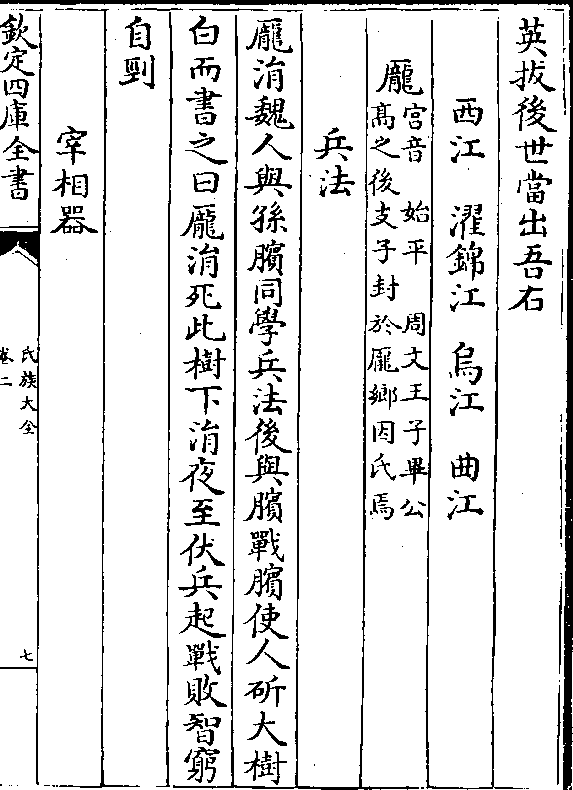 英拔後世當出吾右
西江　濯錦江　烏江　曲江
龎宫音　始平　周文王子畢公
髙之後支子封於龎鄉因氏焉
兵法
龎涓魏人與孫臏同學兵法後與臏戰臏使人斫大樹
白而書之曰龎涓死此樹下涓夜至伏兵起戰敗智窮
自剄
宰相器
欽定四庫全書
氏族大全
卷二
七